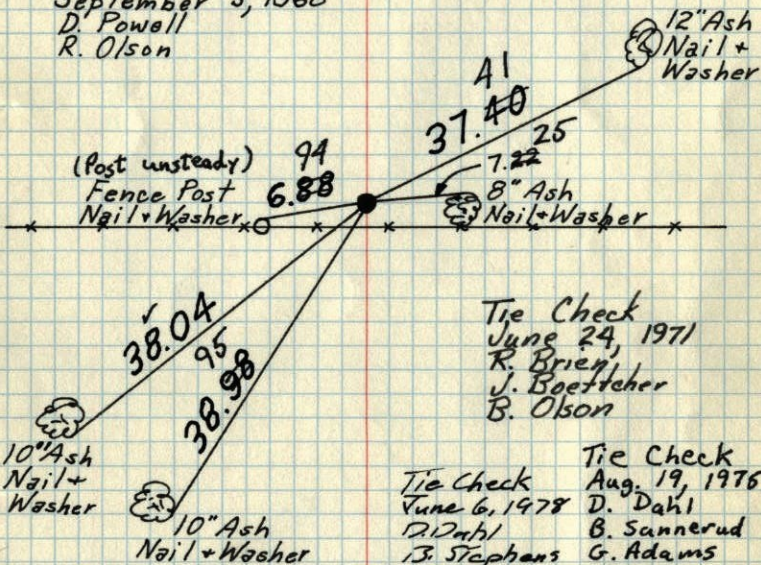 September 3, 1968
D. Powell
R. Olson
12" Ash
Nail +
Washer
41
37.40
25
7.22
(Post unsteady)
Fence Post
Nail + Washer
94
6.88
8" Ash
Nail + Washer
38.04
95
38.98
10" Ash
Nail +
Washer
10" Ash
Nail + Washer
Tie Check
June 24, 1971
R. Brien,
J. Boettcher
B. Olson
Tie Check
June 6, 1978
D. Dahl
B. Stephens
Tie Check
Aug. 19, 1976
D. Dahl
B. Sannerud
G. Adams